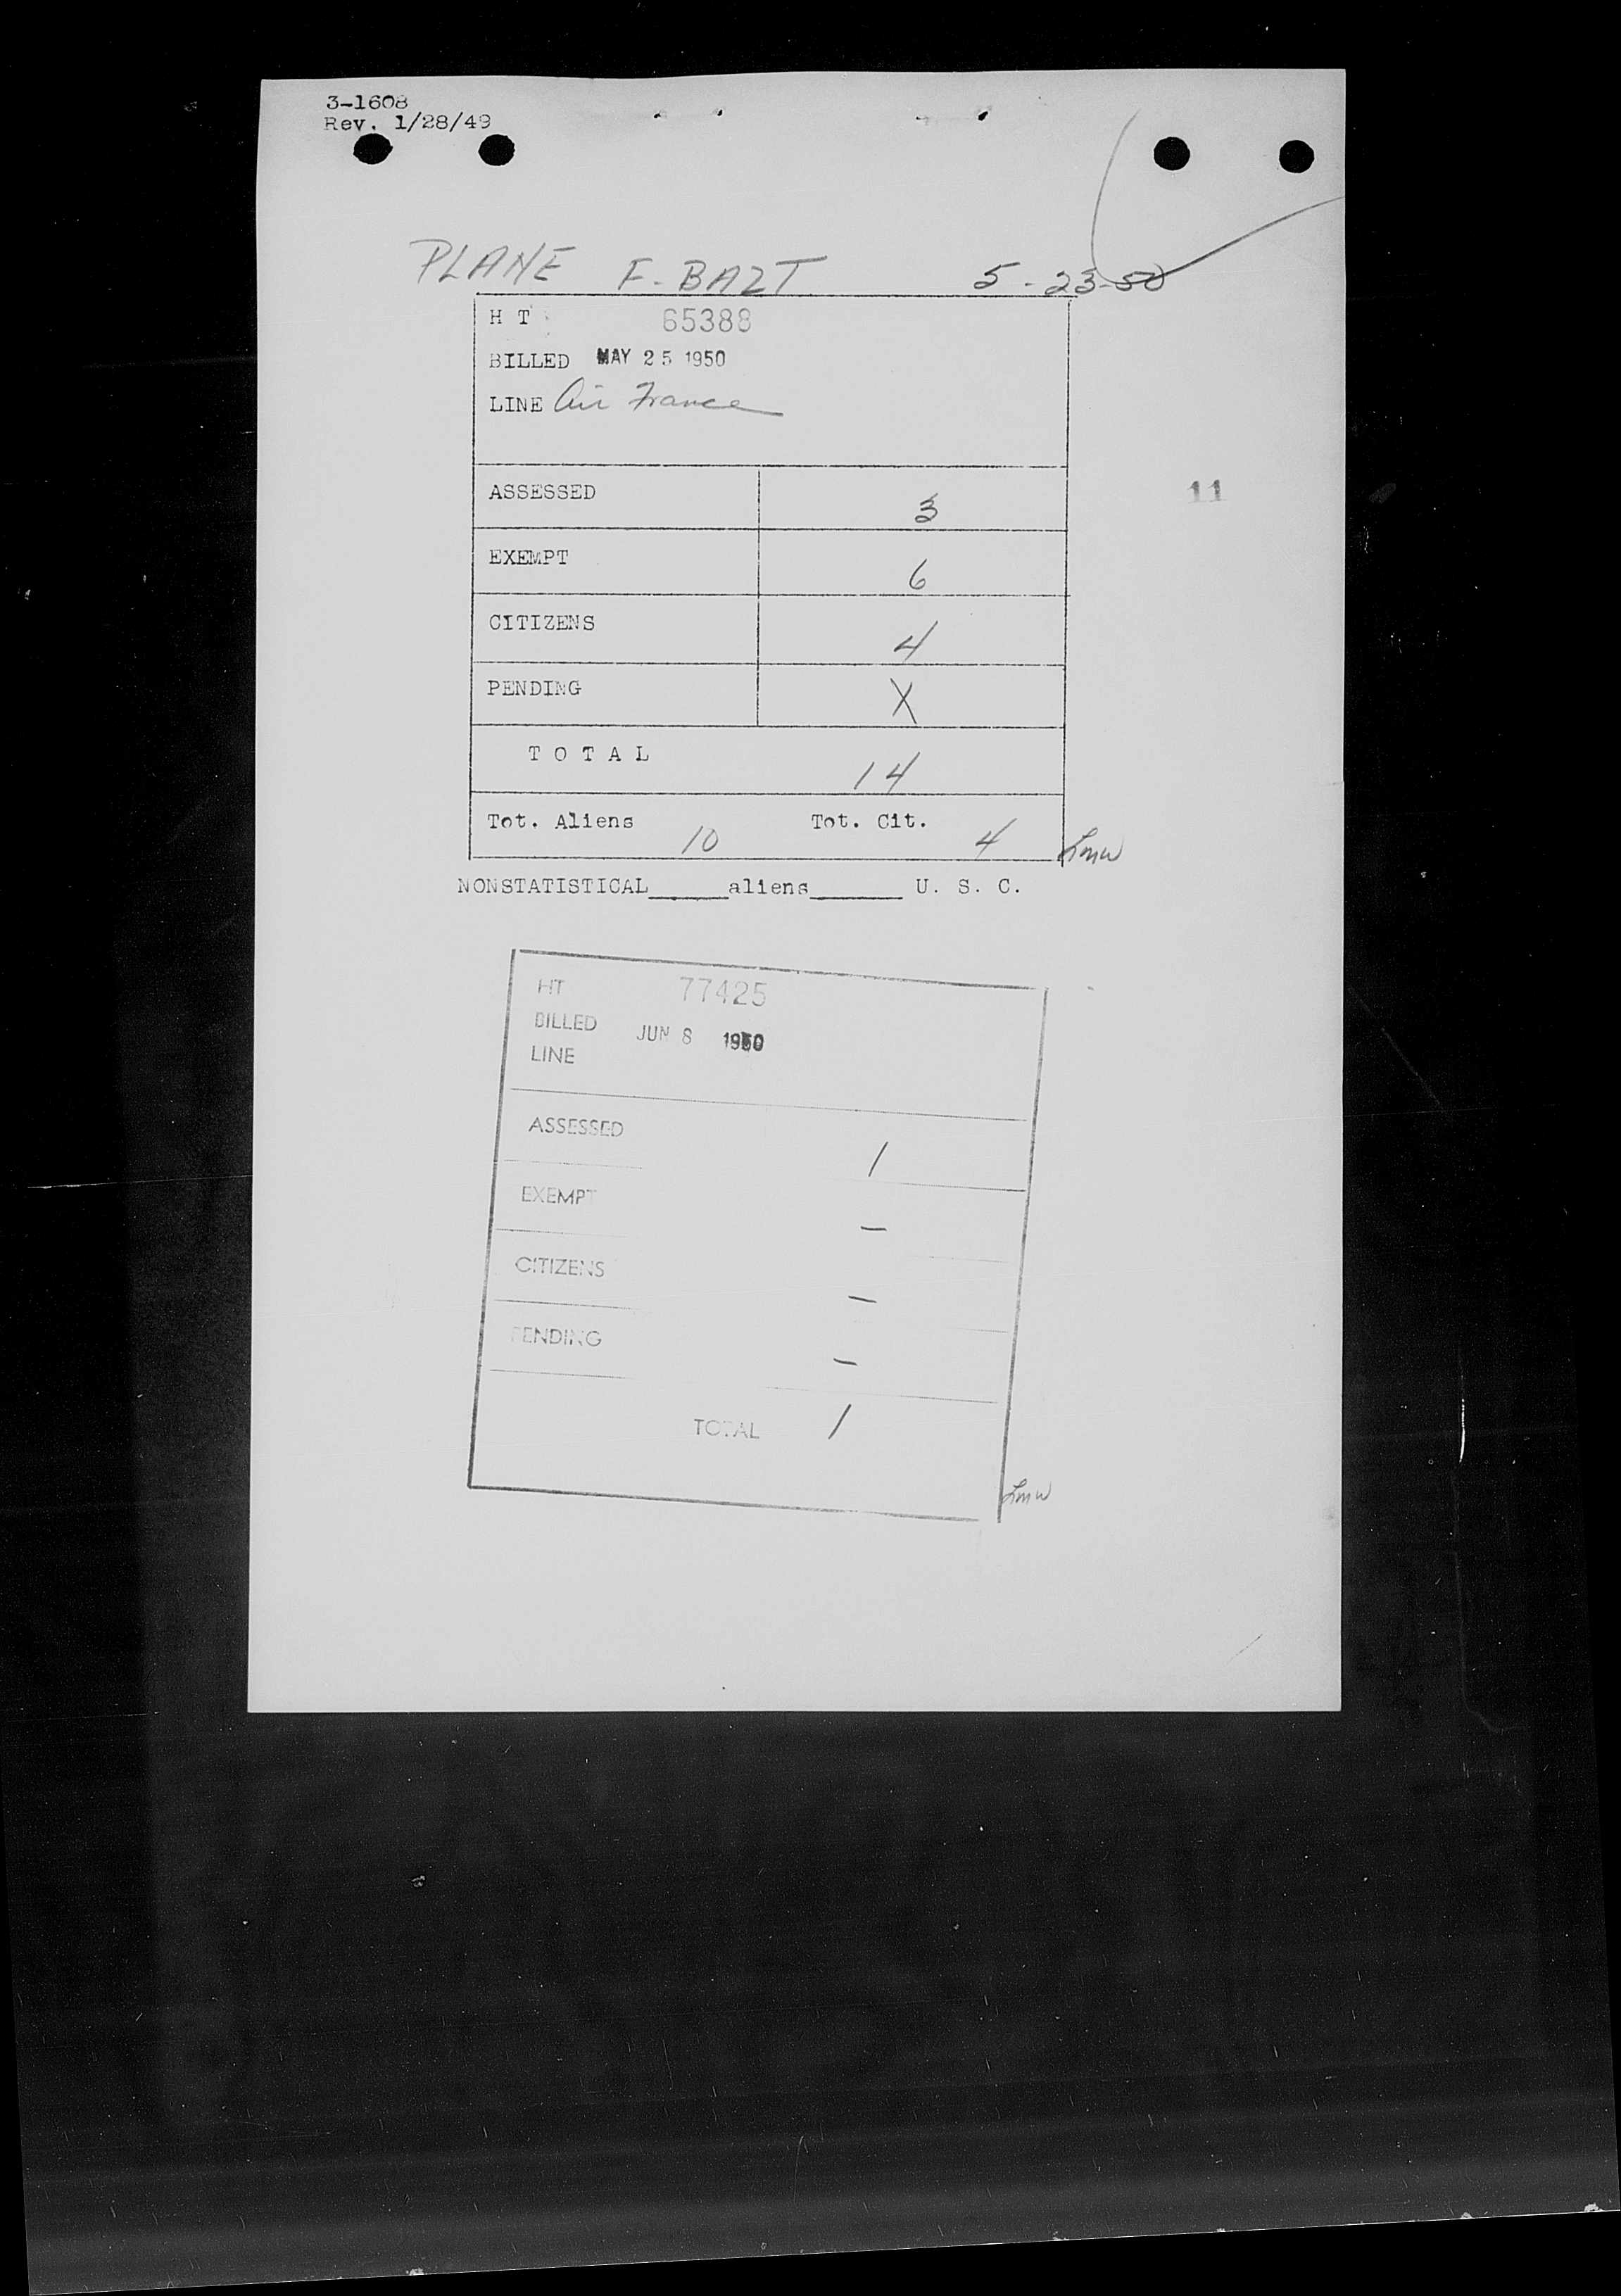 3-1608
Rev. 1/28/49
PLANE F-BAZT 5-23-50
H T 65388
BILLED MAY 25 1950
LINE Air France
ASSESSED 3
11
EXEMPT 6
CITIZENS 4
PENDING X
T O T A L 14
Tot. Aliens 10 Tot. Cit. 4 Lmw
NONSTATISTICAL______aliens_______ U. S. C.
HT 77425
BILLED JUN 8 1950
LINE
ASSESSED 1
EXEMPT —
CITIZENS —
PENDING —
TOTAL 1
Lmw